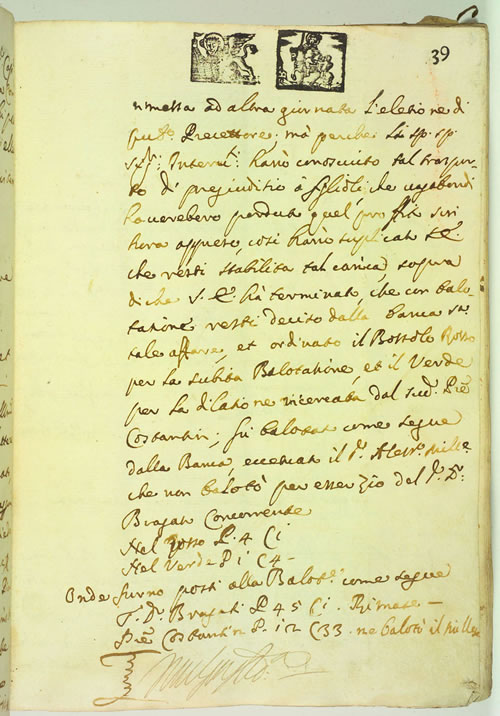 39
rimessa ad altra giornata l'eletione di
pub:o Precettore; mà perche li sp. sp.
Interv:ti hanò conosciuto tal traspor-
to di pregiuditio à figlioli che vagabondi
haverebero perduto quel profito sin
hora appreso, così hanò suplicato S.E.
che resti stabilita tal carica, sopra
di che S.E. hà terminato, che con balo-
tatione resti deciso dalla banca
tale affare, et ordinato il Bossolo Rosso
per la subita Balotatione, et il Verde
per la dilatione ricercata dal sud:o Piè
Costantin; fù balotat come segue
dalla Banca eccetuato il S:r Aless:o Mille-
che non balotò per esser Zio del S:r D:r
Bragati Concorrente
Nel Rosso P. 4 C i
Nel Verde P i C 4 -
Onde furno posti alla Balot:e come segue
S. D:r Bragati P. 45 C i. Rimase -
Piè Costantin P. 12 C 33. ne balotò il Mille